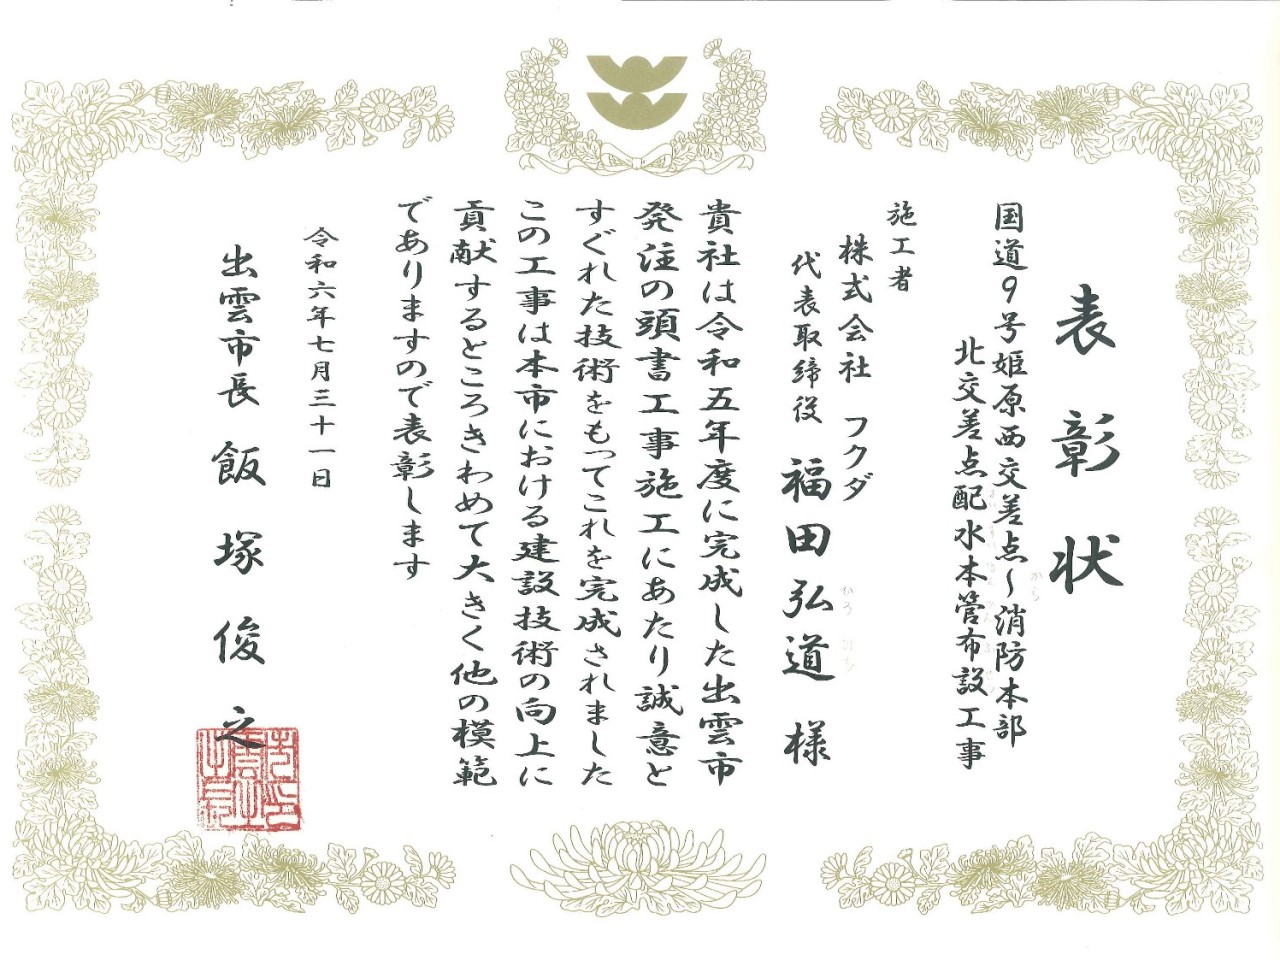 表彰状
国道9号姫原西交差点~消防本部
北交差点配水本管布設工事
施工者
株式会社 フクダ
代表取締役 福田弘道 様
貴社は令和五年度に完成した出雲市
発注の頭書工事施工にあたり誠意と
すぐれた技術をもってこれを完成されました
この工事は本市における建設技術の向上に
貢献するところきわめて大きく他の模範
でありますので表彰します
令和六年七月三十一日
出雲市長 飯塚俊之